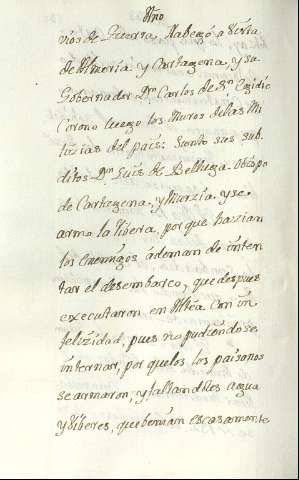 vios de Guerra, Nabegò a vista
de Almeria y Cartagena, y su
Gobernador Dn. Carlos de Sn. Egidio
Corono luego los Muros de las Mi
lizias del pais. Junto sus sub
ditos Dn. Luis de Belluga Obispo
de Cartagena, y Murzia, y se
armo la Ribera, porque hazian
los enemigos àdeman de inten
tar el desembarco, que despues
executaron en Altèa con in
felizidad, pues no pudiendose
internar, porque los paisanos
se armaron, y faltandoles agua
y viberes, que benian escasamente